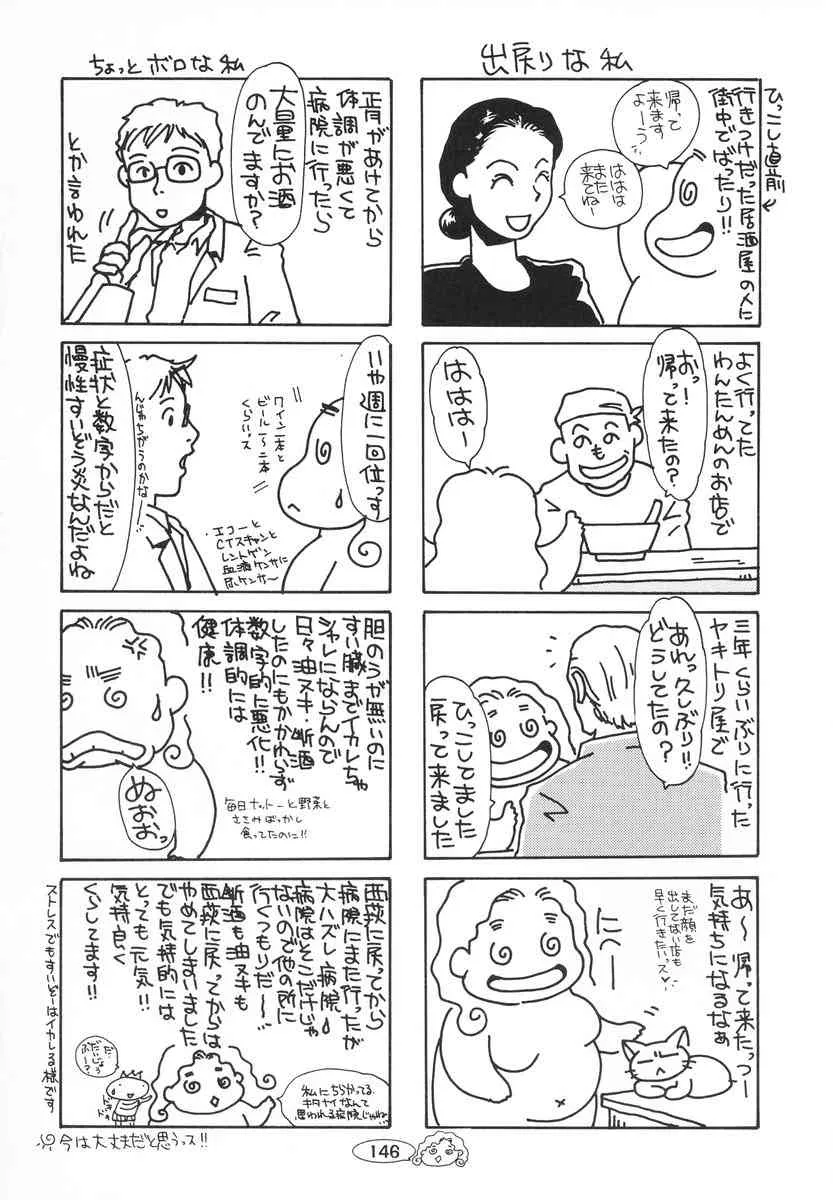 出戻りな私
ひっこし直前
行きつけだった居酒屋の人に
街中でばったり!!
帰って
来ます
よーう
ははは
また
来てねー
よく行ってた
わんたんめんのお店で
おっ!
帰って来たの?
ははは
はー
三年くらいぶりに行った
ヤキトリ屋で
あれっ久しぶり!!
どうしてたの?
ひっこしてました
戻って来ました
あ〜帰って来たっつー
気持ちになるなぁ
まだ顔を
出してない店も
早く行きたいっス♡
にへー
ちょっとボロな私
正月があけてから
体調が悪くて
病院に行ったら
大量にお酒
のんでますか?
とか言われた
いや週に一回位っす
ワイン一本と
ビール1〜二本
くらいっス
・エコーと
CTスキャンと
レントゲン
血液ケンサに
尿ケンサ〜
んじゃちがうのかなー…
症状と数字からだと
慢性すいぞう炎なんだよね
胆のうが無いのに
すい臓までイカレちゃ
シャレにならんので
日々油ヌキ・断酒
したのにもかかわらず
数字的に悪化!!
体調的には
健康!!
ぬおおっ
毎日ナットーと野菜と
ささみばっかし
食ってたのに!!
西荻に戻ってから
病院にまた行ったが
大ハズレ病院
病院はそこだけじゃ
ないので他の所に
行くつもりだ〜
断酒も油ヌキも
西荻に戻ってからは
やめてしまいました
でも気持的には
とっても元気!!
気持良く
くらしてます!!
私にちらかってる
キタナイなんて
思われる病院じゃね
だ…
だいじょう
ぶ…?
ストレスでもすいぞーはイカレる様です
今は大丈夫だと思うっス!!
146